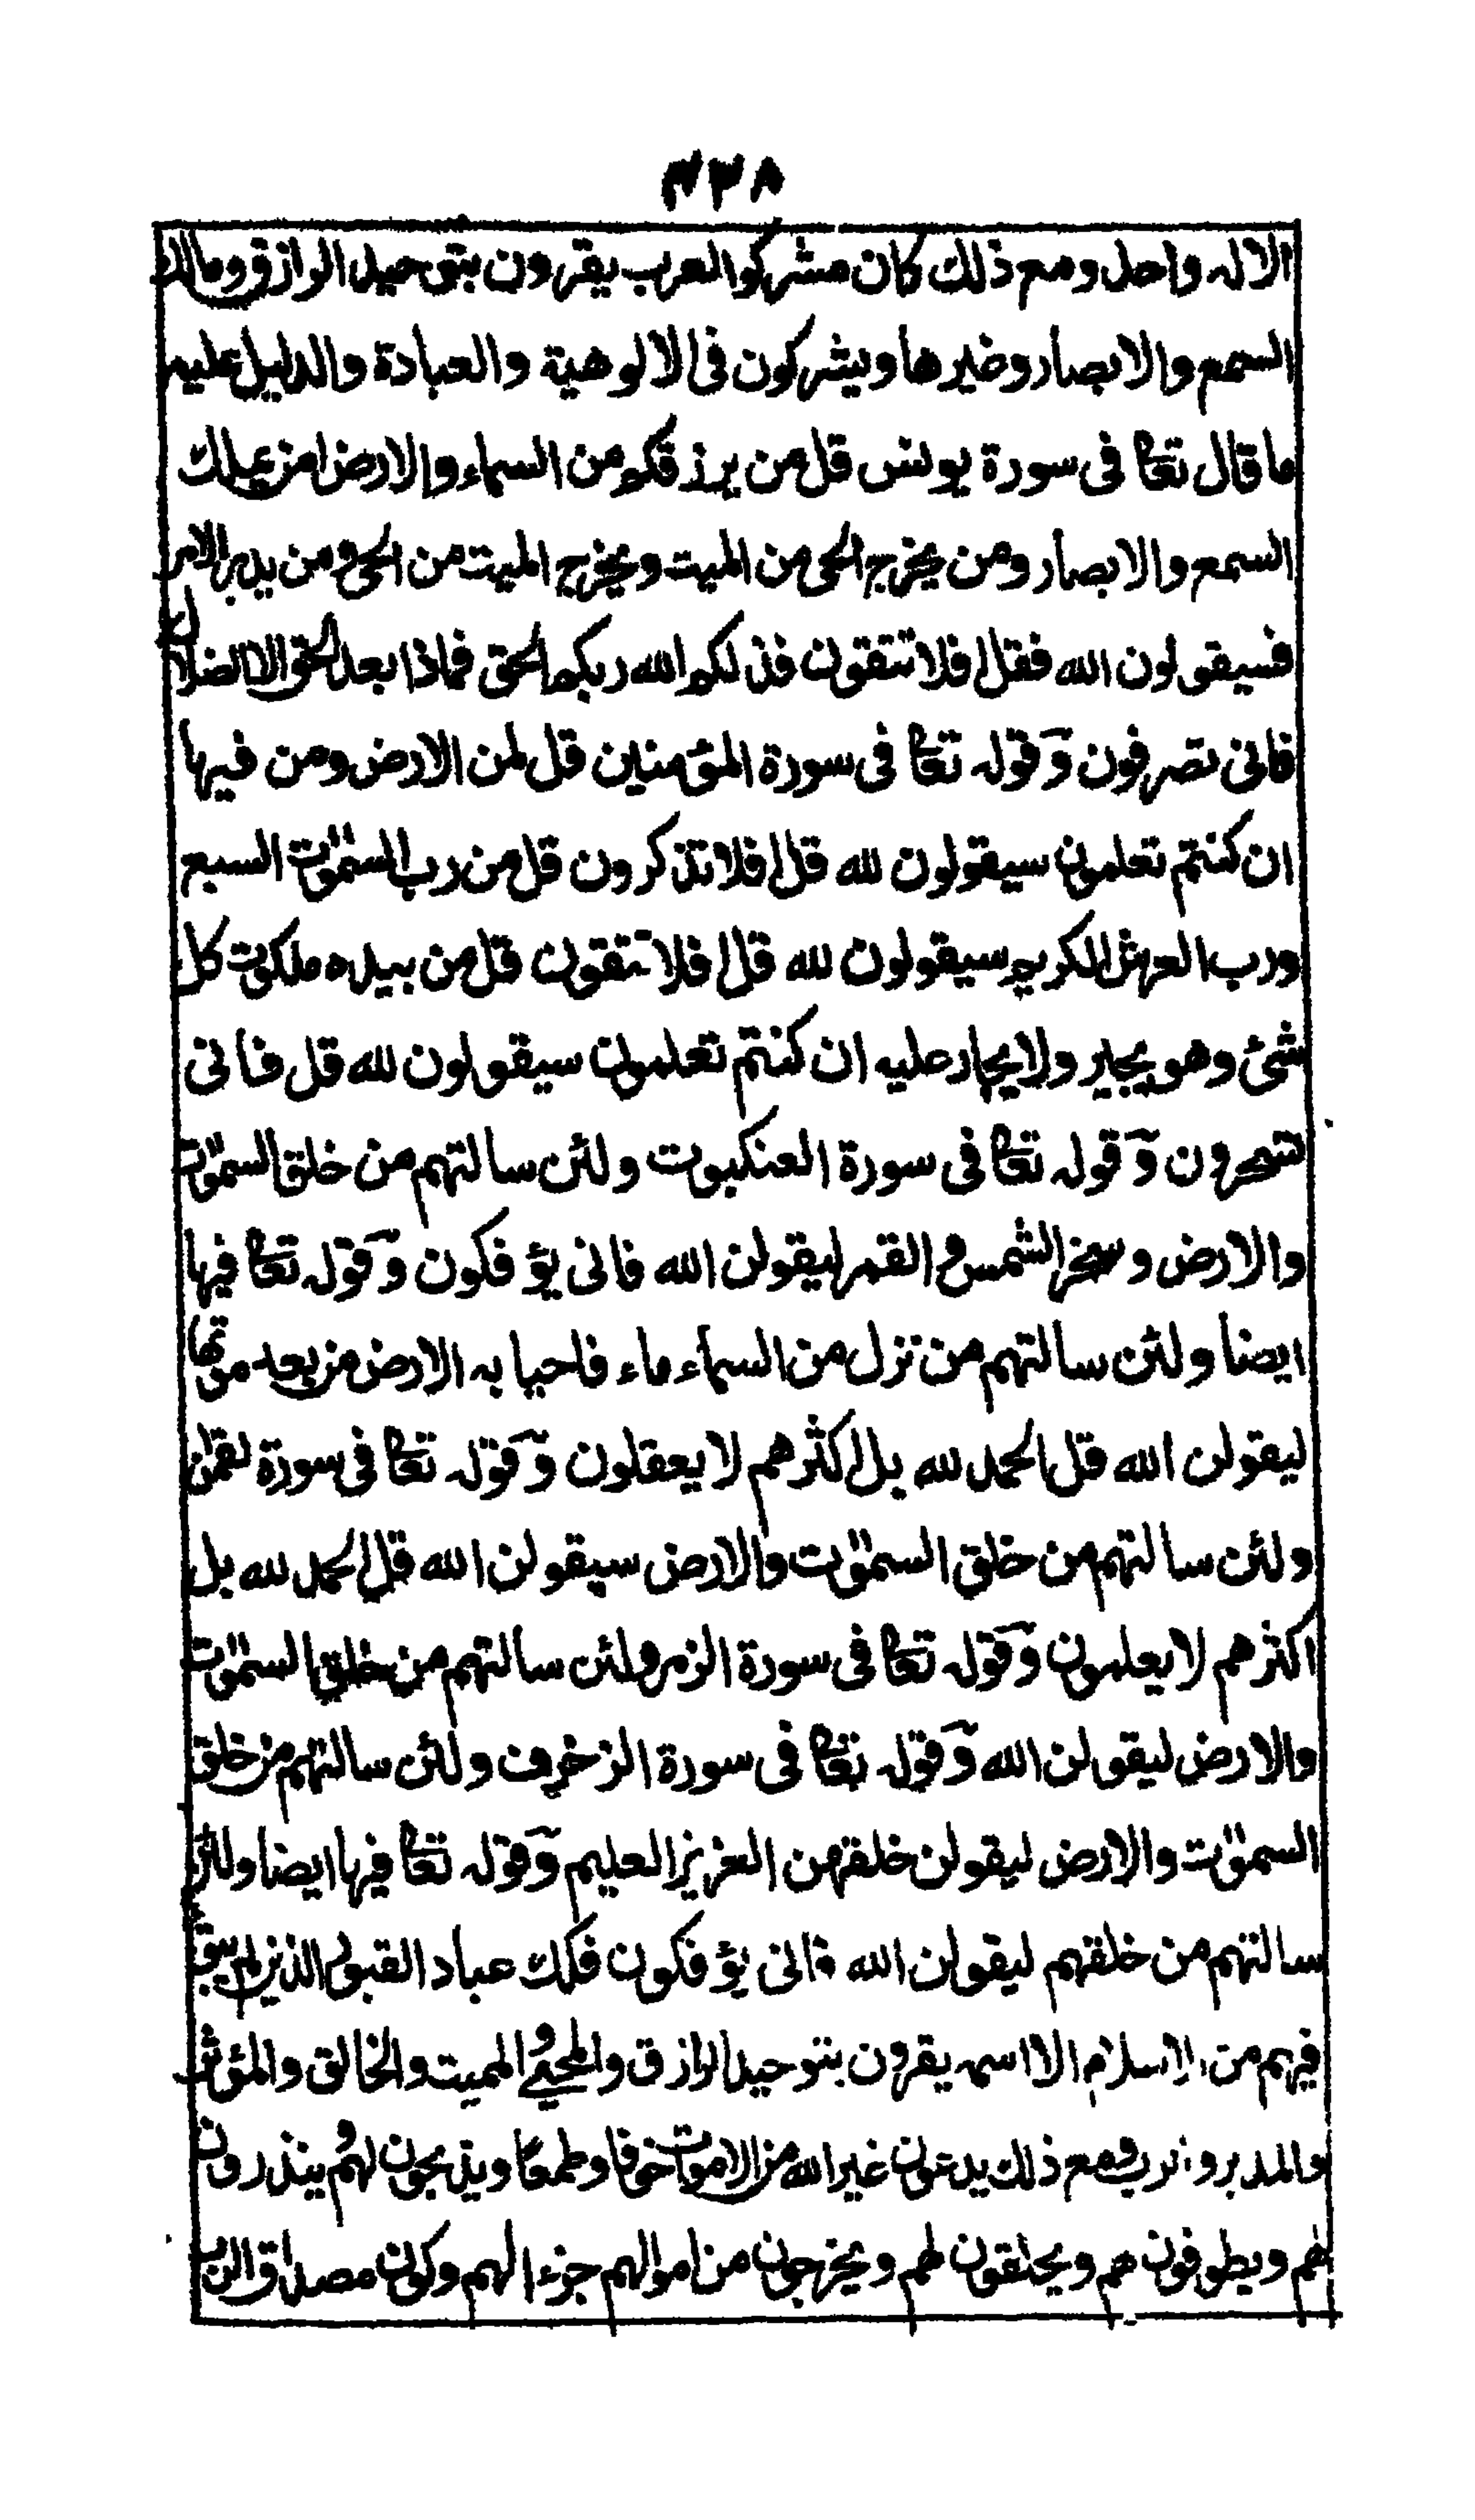 ٣٣٨
الاله واحد ومع ذلك كان مشركوا العرب يقرون بتوحيد الرازق ومالك
السمع والابصار وغيرها ويشركون فى الالوهية والعبادة والدليل عليه
ما قال تعا فى سورة يونس قل من يرزقكم من السماء والارض امن يملك
السمع والابصار ومن يخرج الحى من الميت ويخرج الميت من الحى ومن يدبر الامر
فسيقولون الله فقل افلا تتقون فذلكم الله ربكم الحق فماذا بعد الحق الا الضلال
فانى تصرفون وقوله تعا فى سورة المؤمنين قل لمن الارض ومن فيها
ان كنتم تعلمون سيقولون لله قل افلا تذكرون قل من رب السموت السبع
ورب العرش الكريم سيقولون لله قل افلا تتقون قل من بيده ملكوت كل
شئ وهو يجير ولا يجار عليه ان كنتم تعلمون سيقولون لله قل فانى
تسحرون وقوله تعا فى سورة العنكبوت ولئن سالتهم من خلق السموت
والارض وسخر الشمس والقمر ليقولن الله فانى يؤفكون وقوله تعا فيها
ايضا ولئن سالتهم من نزل من السماء ماء فاحيا به الارض من بعد موتها
ليقولن الله قل الحمد لله بل اكثرهم لا يعقلون وقوله تعا فى سورة لقمن
ولئن سالتهم من خلق السموت والارض سيقولن الله قل الحمد لله بل
اكثرهم لا يعلمون وقوله تعا فى سورة الزمر ولئن سالتهم من خلق السموت
والارض ليقولن الله وقوله تعا فى سورة الزخرف ولئن سالتهم من خلق
السموت والارض ليقولن خلقهن العزيز العليم وقوله تعا فيها ايضا ولئن
سالتهم من خلقهم ليقولن الله فانى يؤفكون فكك عباد القبور الذين لم يبق
فيهم من الاسلام الا اسمه يقرون بتوحيد الرازق والمحيى والمميت والخالق والمؤثر
والمدبر ومع ذلك يدعون غير الله من الاموات خوفا وطمعا ويذبحون لهم وينذرون
لهم ويطوفون بهم ويحلقون لهم ويخرجون من اموالهم جزءا لهم وكون مصداق الرب